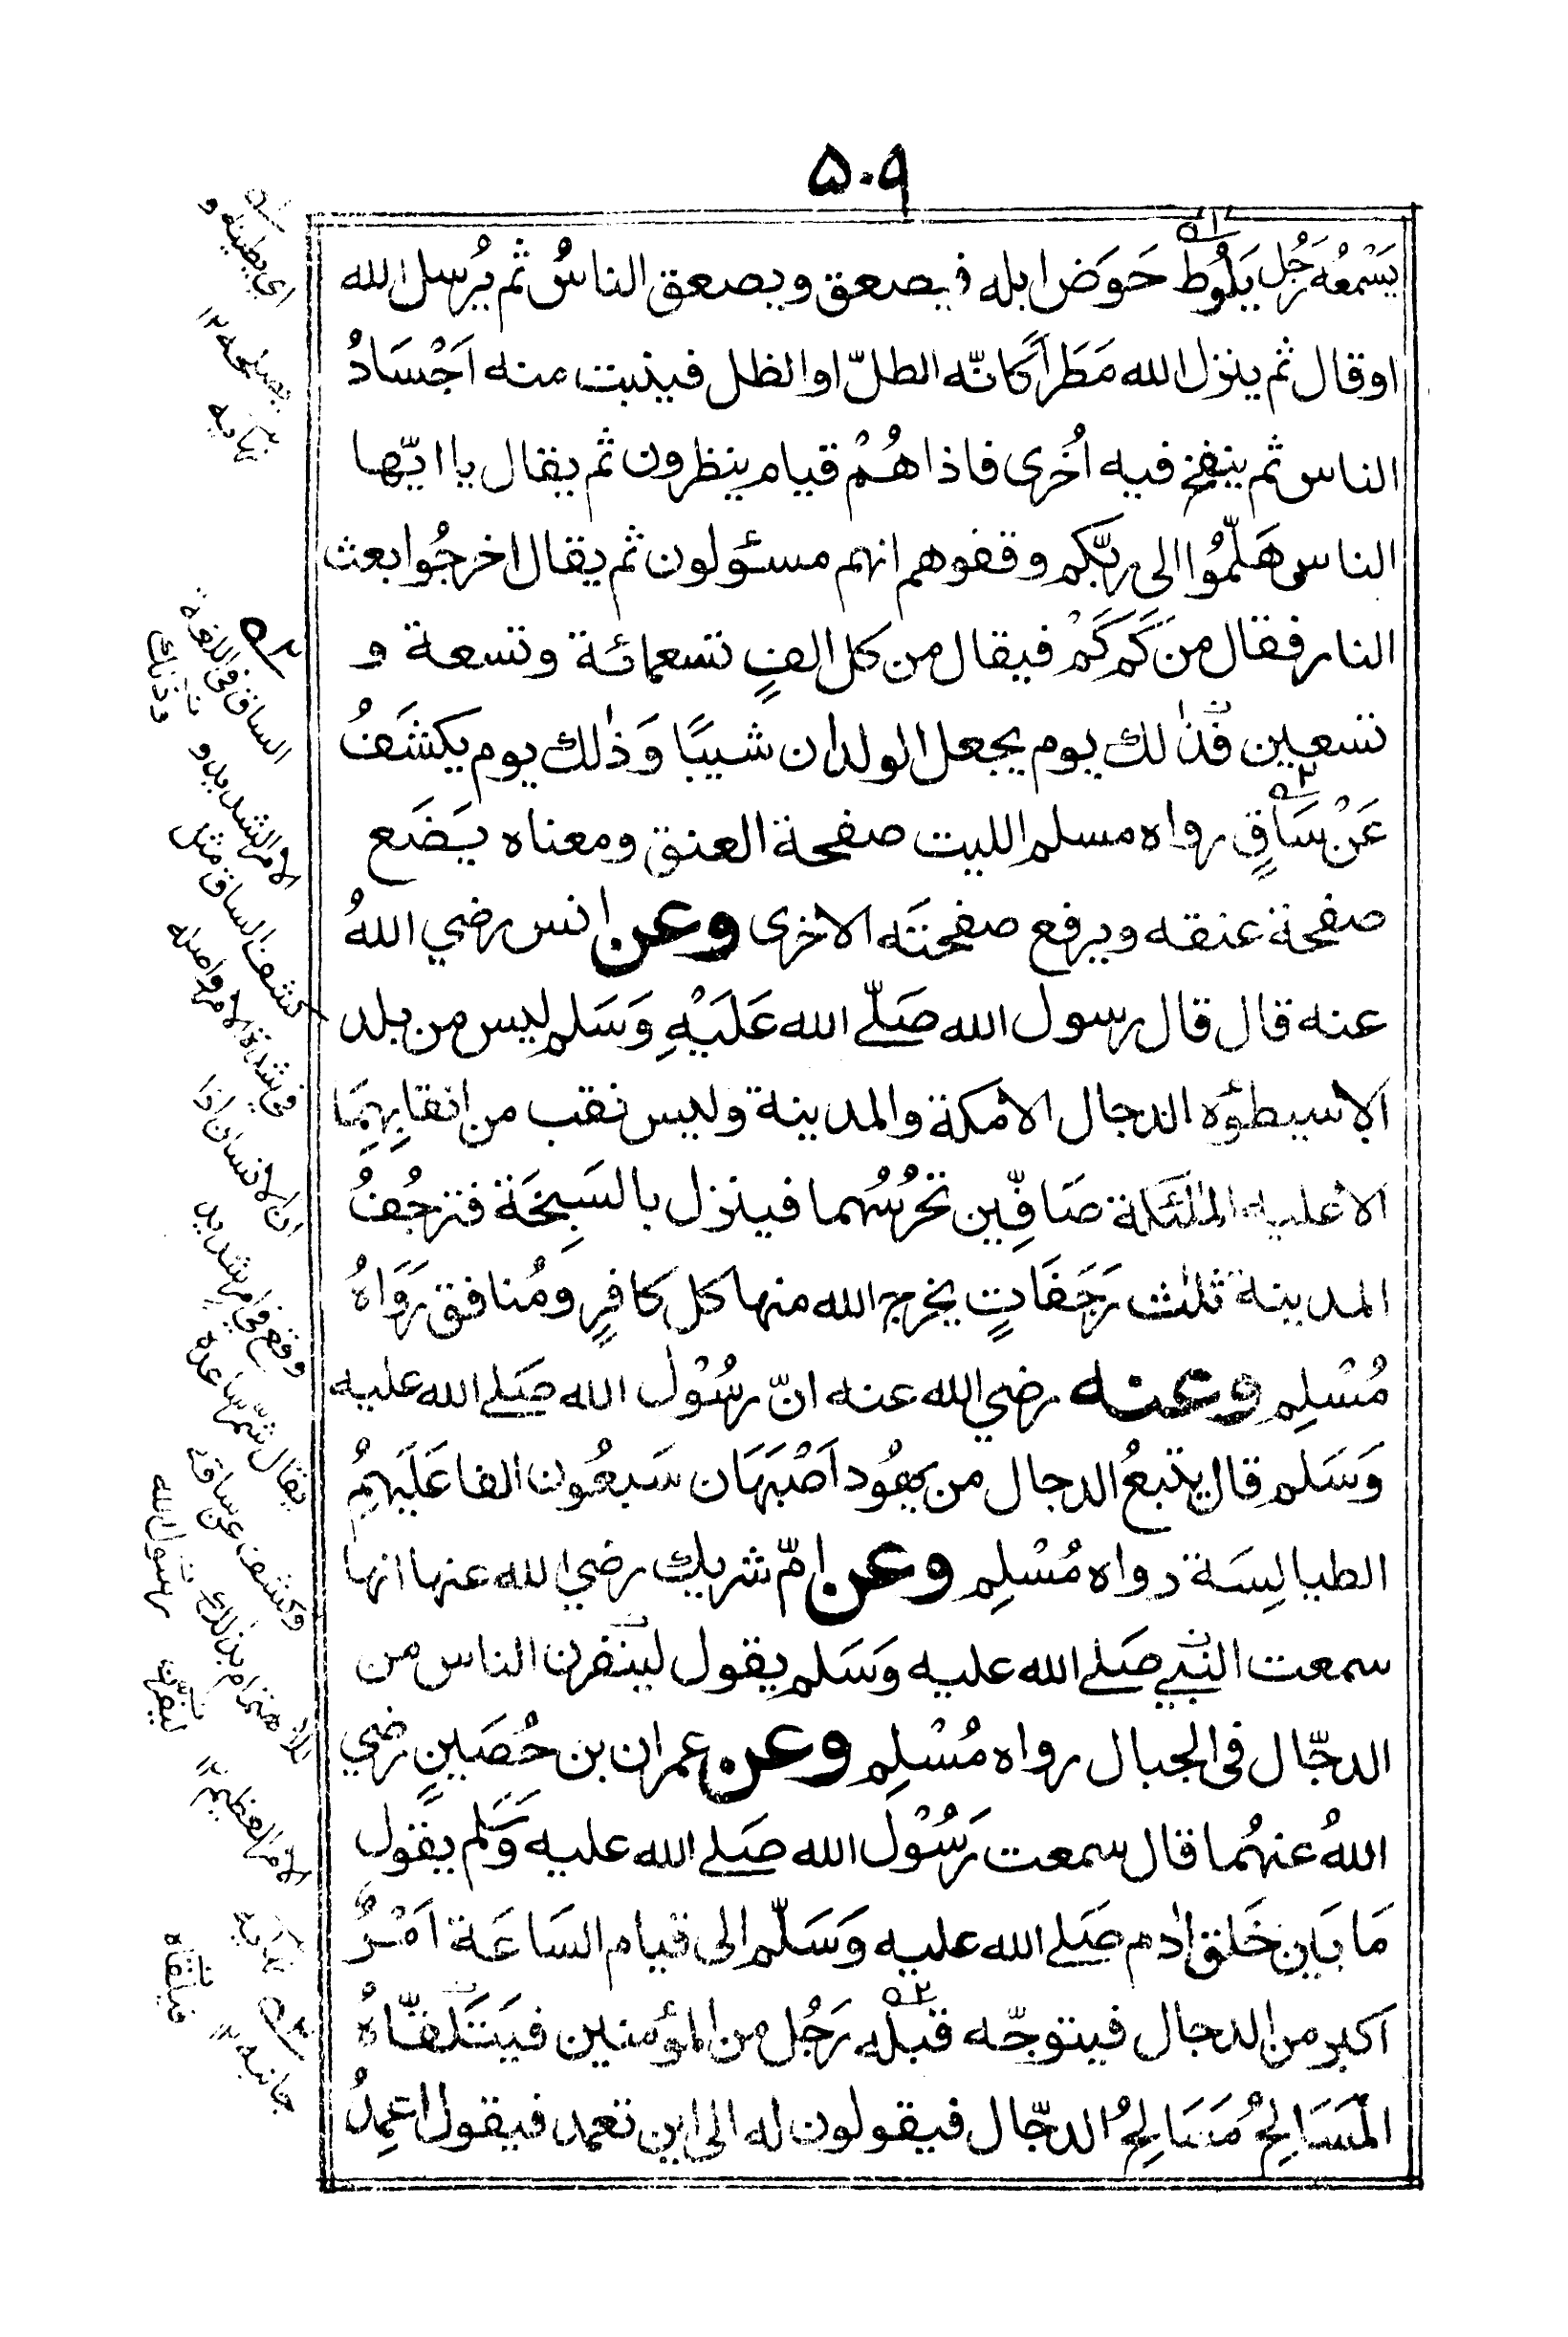 ۵۰۹
يَسْمعُه رَجُل يَلُوط حَوَض ابله فيصعق ويصعق الناسُ ثم يُرسل الله
او قال ثم ينزل الله مَطَراً كانّه الطلّ او الظل فينبت منه اَجْسَادُ
الناس ثم ينفخ فيه اُخرى فاذا هُمْ قيام ينظرون ثم يقال يا ايّها
الناس هَلمُّوا الى ربّكم وقفوهم انهم مسئولون ثم يقال اخرجُوا بعث
النار فقال من كَم كَمْ فيقال من كل الفٍ تسعمائة وتسعة و
تسعين فذٰلك يوم يجعل الولدان شيبًا وَذٰلك يوم يكشَفُ
عَنْ سَاقٍ رواه مسلم الليت صفحة العنق ومعناه يَضَع
صفحة عنقه ويرفع صفحتَه الاخرى وعن انس رضي اللهُ
عنه قال قال رسول الله صَلّے الله عَلَيْهِ وَسَلم ليس من بلد
الا سيطؤه الدجال الا مكة والمدينة وليس نقب من انقابِهِمَا
الا عليه الملٰئكة صَافِّين تحْرُسُهما فينزل بالسَبِخَة فترجُفُ
المدينة ثلٰث رَجَفَاتٍ يخرج الله منها كل كافرٍ ومُنافق رَوَاهُ
مُسْلِم وعنه رضي الله عنه انّ رسُوْل الله صَلے الله عليه
وَسَلم قال يتبعُ الدجال من يهُود اَصْبَهَان سَبعُون الفا عَلَيهمُ
الطيالِسَة رواه مُسْلِم وعن امّ شريك رضي الله عنها انها
سمعت النبي صَلے الله عليه وَسَلم يقول لينفرن الناس من
الدجّال فى الجبال رواه مُسْلِم وعن عمران بن حُصَينٍ رضي
اللهُ عنهُما قال سمعت رَسُوْل الله صَلے الله عليه وَسَلم يقول
مَا بَين خَلق اٰدم صَلے الله عليه وَسَلّم الى قيام السَاعَة اَمْرٌ
اكبر من الدجال فيتوجّه قبله رَجُل من المؤمنين فيَتَلقّاهُ
المَسَالحُ مَسَالِحُ الدجّال فيقولون له الى اين تعمد فيقول اعمِدُ
اي يطينه و
يصلحه ١٢
نهايه
الساق فى اللغة
الامر الشديد و
كشف الساق مثل
فى شدة الامر واصله
ان الانسان اذا
وقع في امر شديد
يقال شمّر ساعده
وكشف عن ساقه
للاهتمام بذلك
الامر العظيم ١٢
نهايه
جانبه ١٢
وذلك
رسول الله
ليفرن
فيلقاه